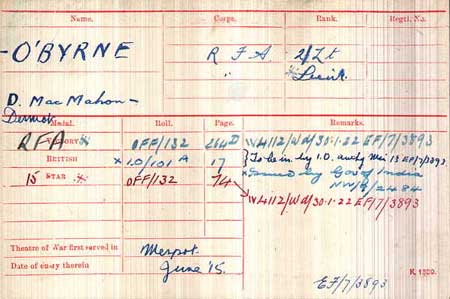 Name. Corps. Rank. Regtl. No.
O'BYRNE R F A 2/Lt
" * Lieut.
D. Mac Mahon
Dermot
Medal. Roll. Page. Remarks.
VICTORY * OFF/132 264D IV4112/W d/30.1.22 EF/7/3893
RFA
BRITISH × I.O/101 A 17 } To be in by I.O. 15 EF/7/3893.
15 STAR * OFF/132 74 × Issued by Gov of India
NW/8/2484
IV4112/W d/30.1.22 EF/7/3893
Theatre of War first served in Mespot.
Date of entry therein June '15.
EF/7/3893
K 1380.